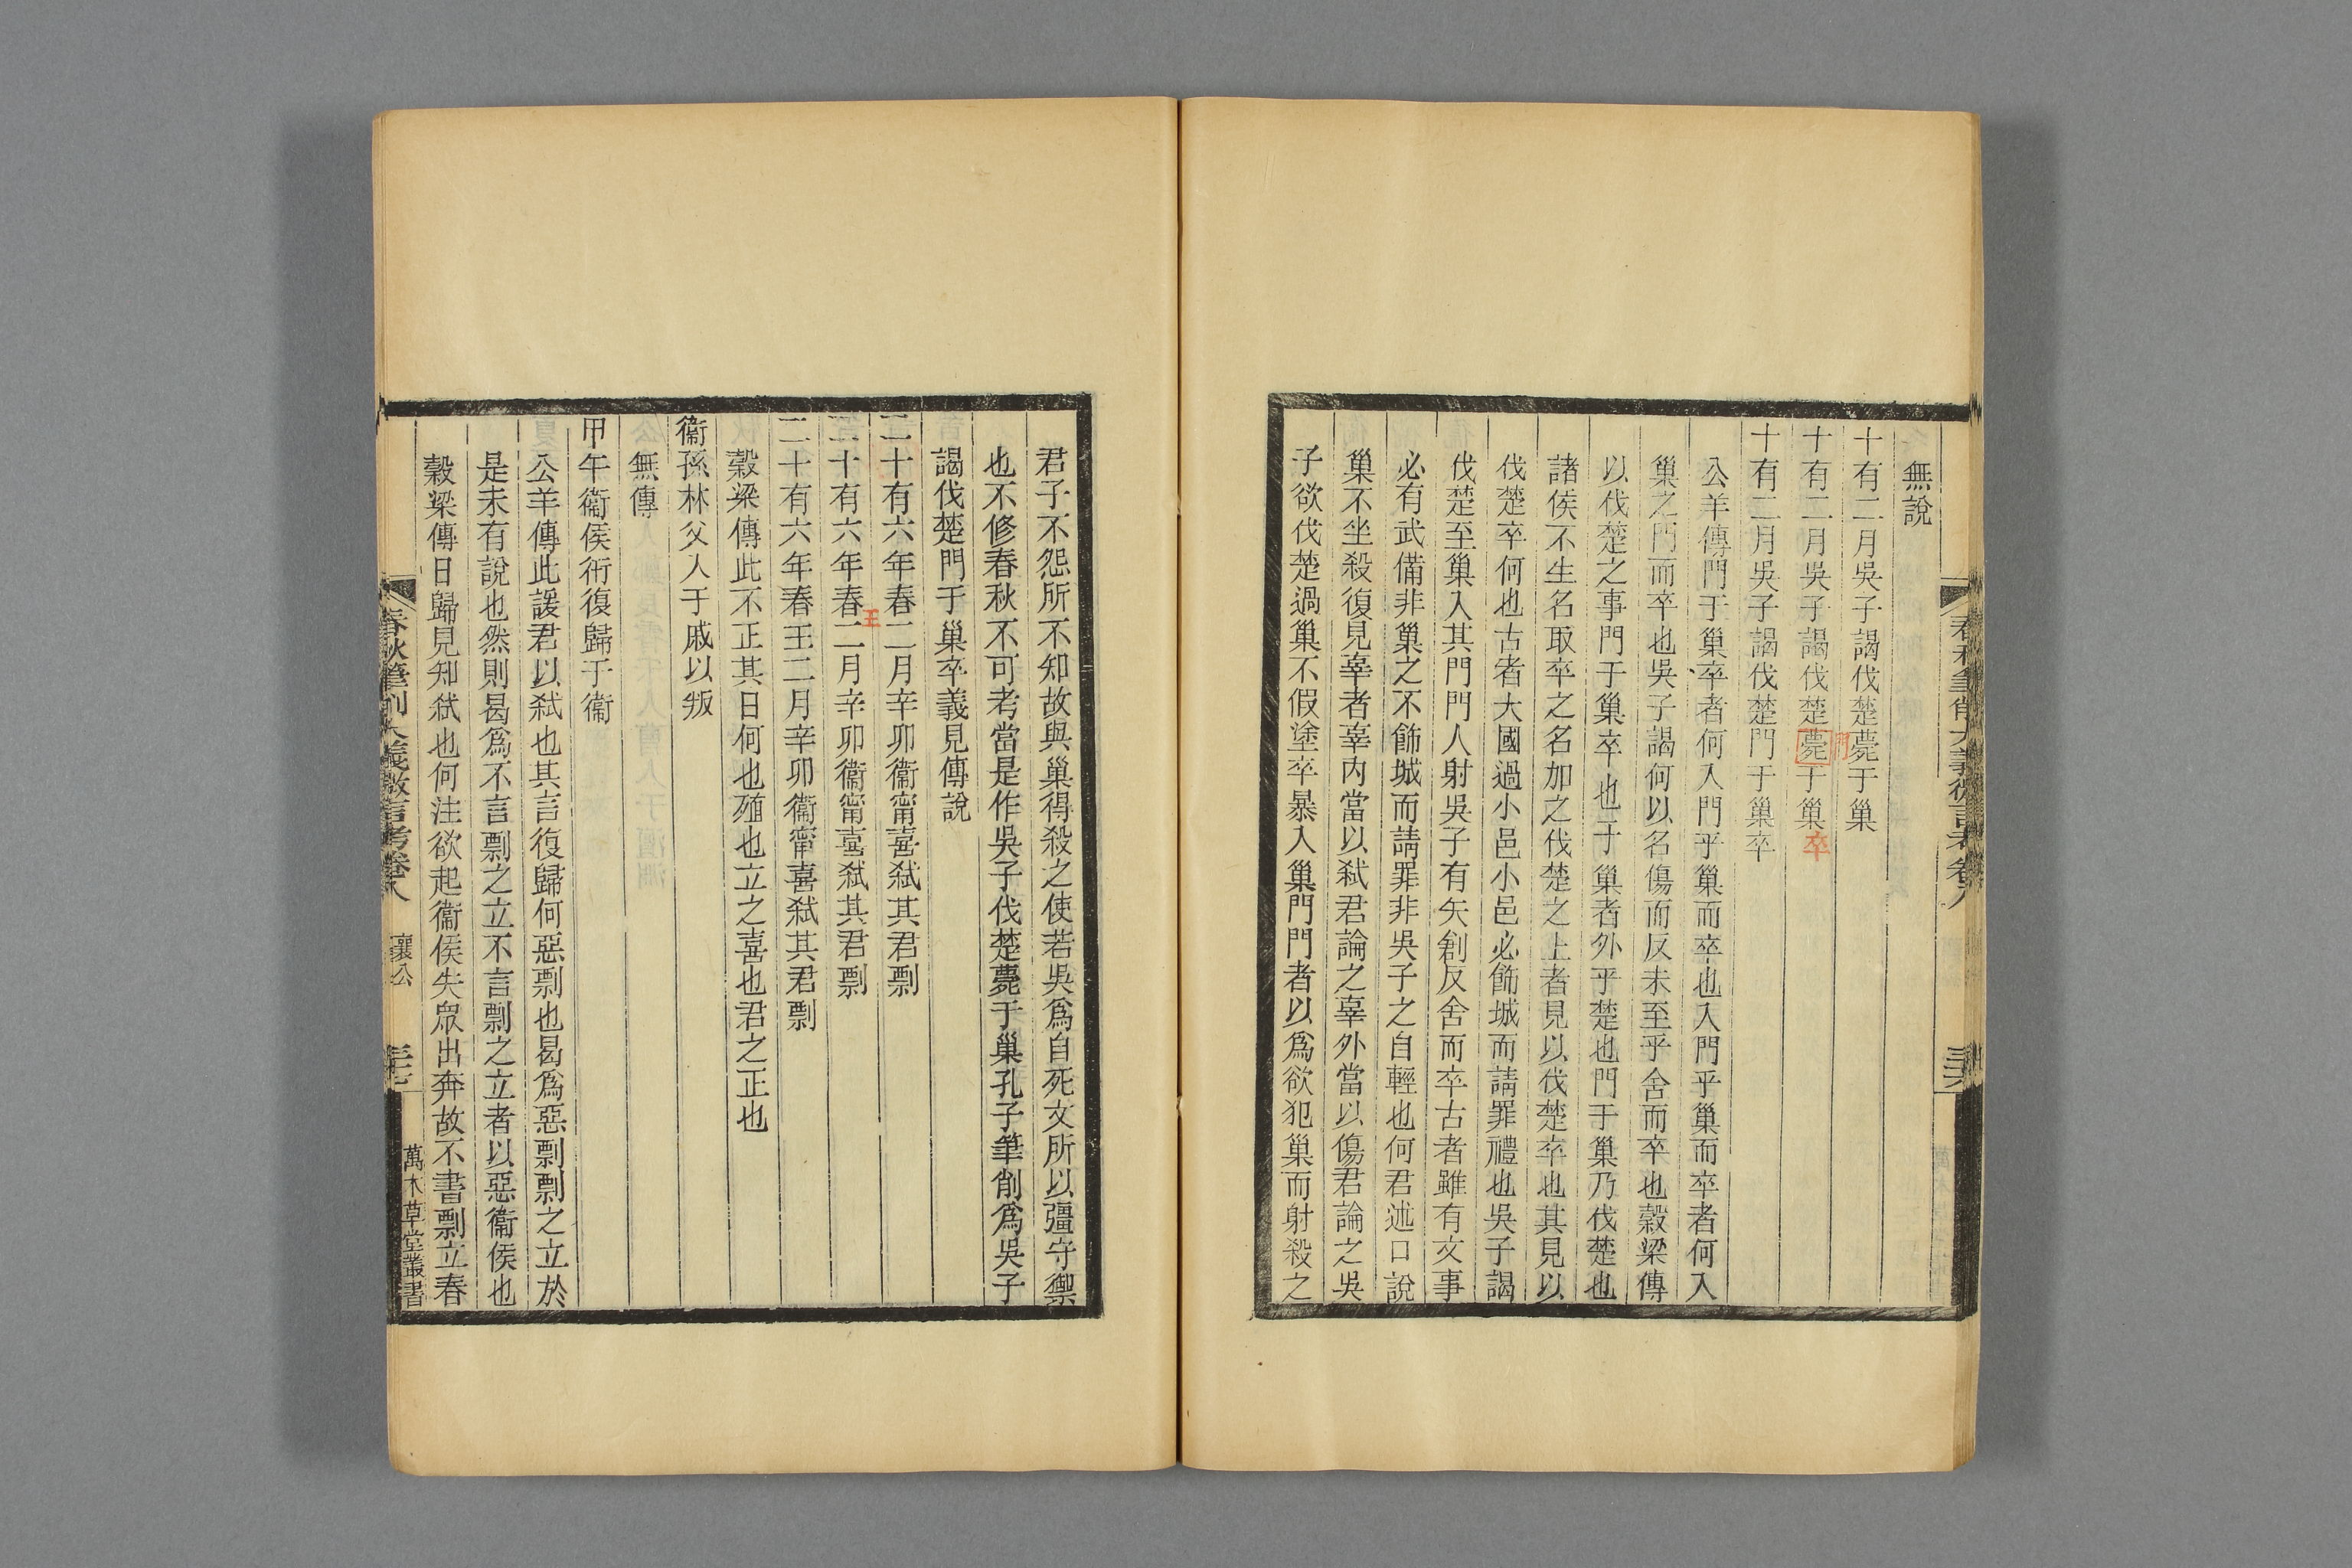 無說
十有二月吳子謁伐楚薨于巢
十有二月吳子謁伐楚薨門于巢卒
十有二月吳子謁伐楚門于巢卒
公羊傳門于巢卒者何入門乎巢而卒也入門乎巢而卒者何入
巢之門而卒也吳子謁何以名傷而反未至乎舍而卒也穀梁傳
以伐楚之事門于巢卒也于巢者外乎楚也門于巢乃伐楚也
諸侯不生名取卒之名加之伐楚之上者見以伐楚卒也其見以
伐楚卒何也古者大國過小邑小邑必飾城而請罪禮也吳子謁
伐楚至巢入其門門人射吳子有矢創反舍而卒古者雖有文事
必有武備非巢之不飾城而請罪非吳子之自輕也何君述口說
巢不坐殺復見辜者辜內當以弒君論之辜外當以傷君論之吳
子欲伐楚過巢不假塗卒暴入巢門門者以爲欲犯巢而射殺之
君子不怨所不知故與巢得殺之使若吳爲自死文所以彊守禦
也不修春秋不可考當是作吳子伐楚薨于巢孔子筆削爲吳子
謁伐楚門于巢卒義見傳說
二十有六年春二月辛卯衞甯喜弒其君剽
二十有六年春王二月辛卯衞甯喜弒其君剽
二十有六年春王二月辛卯衞甯喜弒其君剽
穀梁傳此不正其日何也殖也立之喜也君之正也
衞孫林父入于戚以叛
無傳
甲午衞侯衎復歸于衞
公羊傳此諼君以弒也其言復歸何惡剽也曷爲惡剽剽之立於
是未有說也然則曷爲不言剽之立不言剽之立者以惡衞侯也
穀梁傳日歸見知弒也何注欲起衞侯失眾出奔故不書剽立春
春秋筆削大義微言考卷八 襄公 三十七 萬木草堂叢書